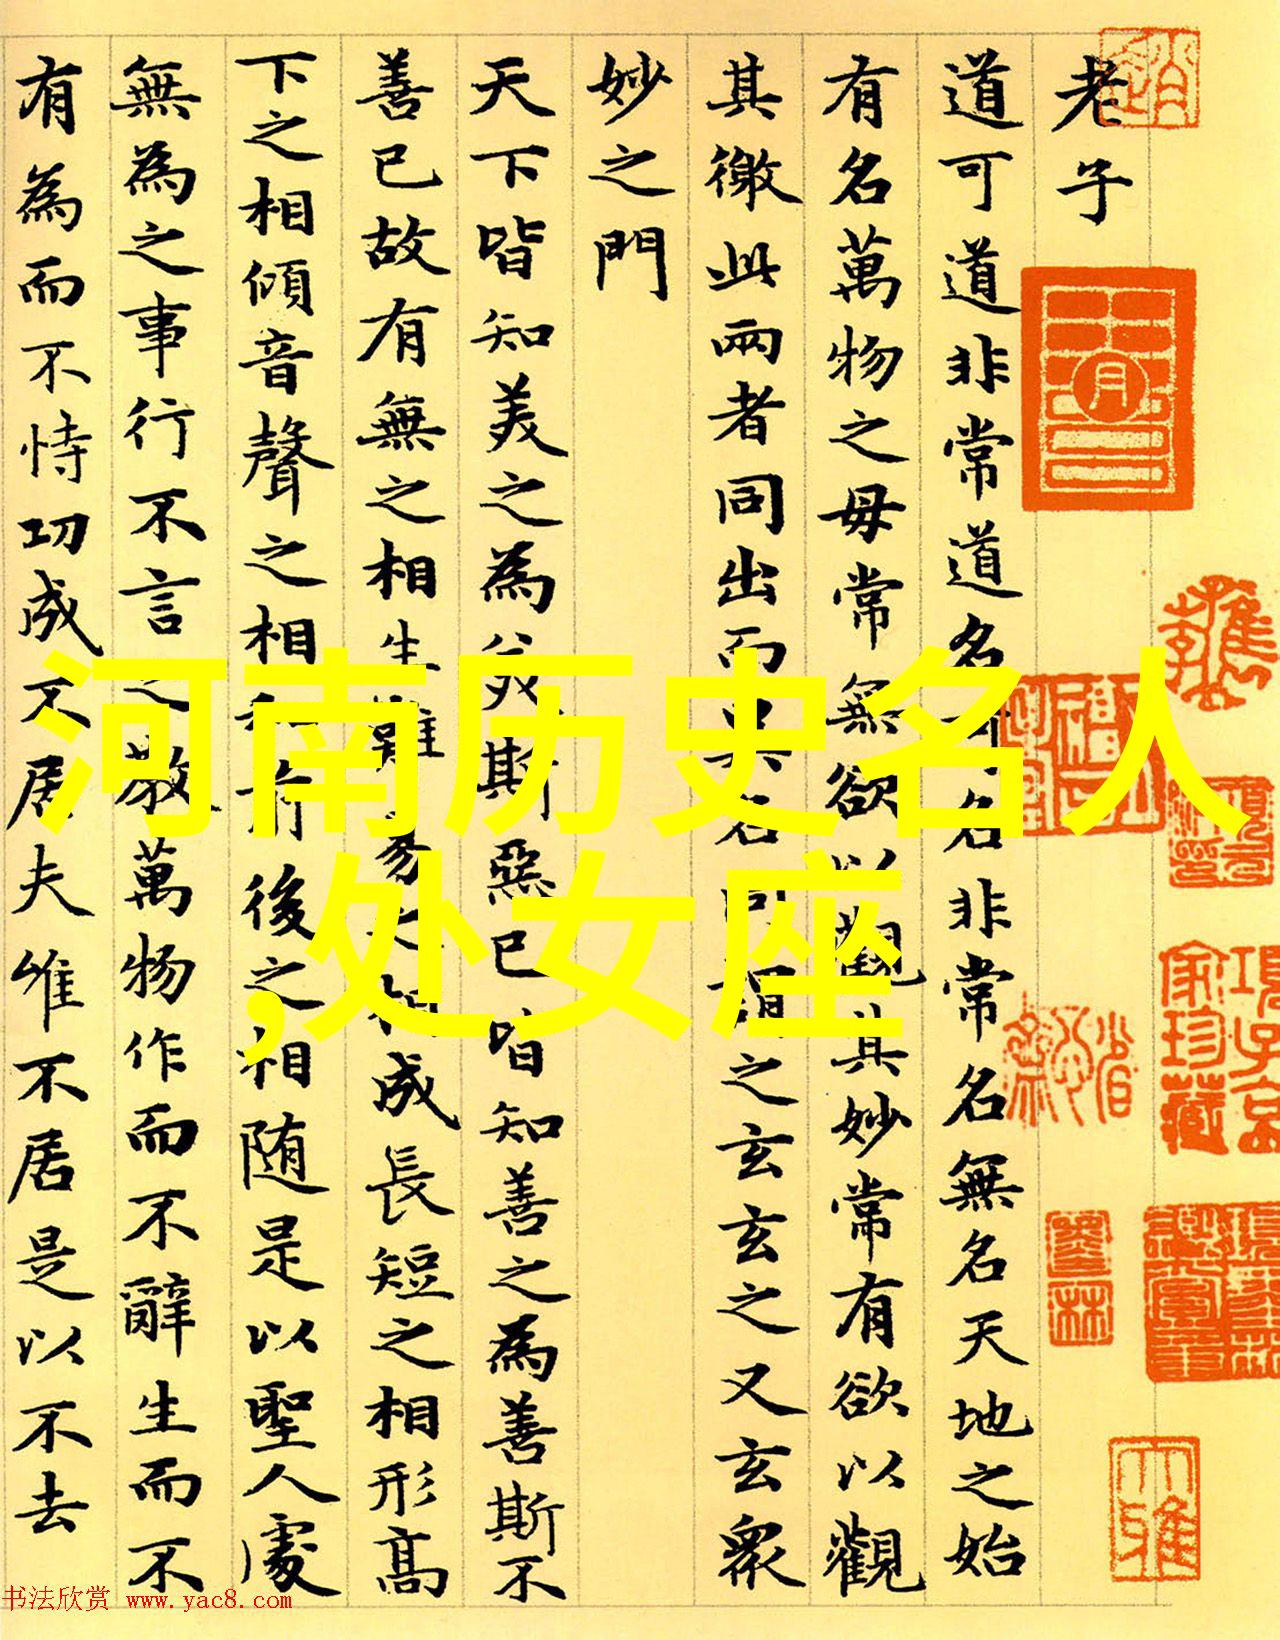 老子
道可道非常道名可名非常名無名天地之始
有名萬物之母常無欲以觀其妙常有欲以觀
其徼此兩者同出而異名同謂之玄玄之又玄衆
妙之門
天下皆知美之為美斯惡已皆知善之為善斯不
善已故有無之相生難易之相成長短之相形高
下之相傾音聲之相和前後之相随是以聖人處
無為之事行不言之教萬物作而不辭生而不
有為而不恃功成不居夫唯不居是以不去
河南历史名人
,处女座
項子京
家珍藏
书法欣赏 www.yac8.com